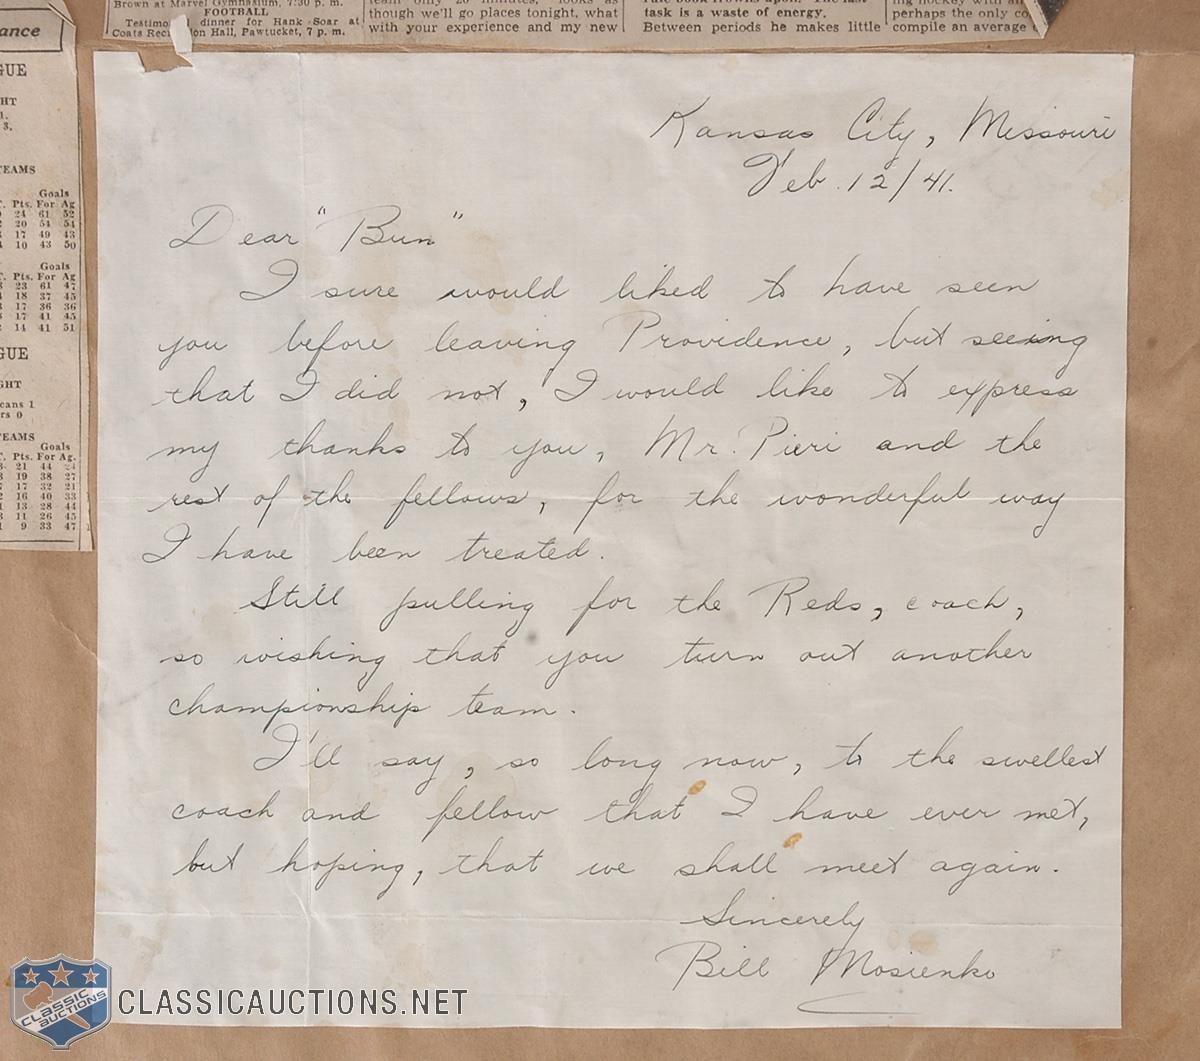 Brown at Marvel Gymnasium, 7:30 p. m.
FOOTBALL
Testimonial dinner for Hank Soar at
Coats Hall, Pawtucket, 7 p. m.
team only 20 minutes, looks as
though we'll go places tonight, what
with your experience and my new
task is a waste of energy.
Between periods he makes little
perhaps the only
compile an average
ance
GUE
HT
1.
3.
TEAMS
Goals
T. Pts. For Ag
24 61 52
20 54 54
17 49 43
10 43 50
Goals
T. Pts. For Ag
23 61 47
18 37 45
17 36 36
17 41 45
14 41 51
GUE
GHT
cans 1
rs 0
TEAMS
Goals
T. Pts. For Ag.
21 44 24
19 38 27
17 32 21
16 40 33
13 28 44
11 26 45
9 33 47
Kansas City, Missouri
Feb. 12/41.
Dear "Bun"
I sure would liked to have seen
you before leaving Providence, but seeing
that I did not, I would like to express
my thanks to you, Mr. Pieri and the
rest of the fellows, for the wonderful way
I have been treated.
Still pulling for the Reds, coach,
so wishing that you turn out another
championship team.
I'll say, so long now, to the swellest
coach and fellow that I have ever met,
but hoping, that we shall meet again.
Sincerely
Bill Mosienko
CLASSIC
AUCTIONS
CLASSICAUCTIONS.NET